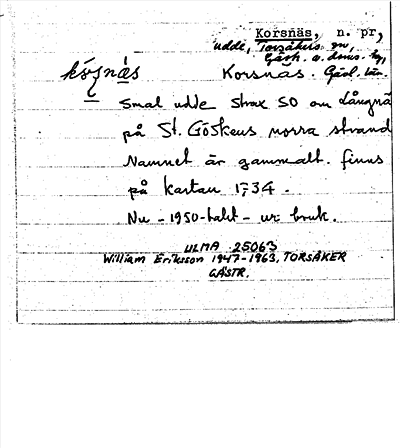 Korsnäs, n. pr,
udde, Torsåkers sn,
Gästr. ö. doms.
Korsnäs. Gävl. län.
Smal udde strax SO om Långnä
på St. Göskens norra strand
Namnet är gammalt. finns
på kartan 1734.
Nu - 1950-talet - ur bruk.
ULMA 25063
William Eriksson 1947-1963, TORSÅKER
GÄSTR.